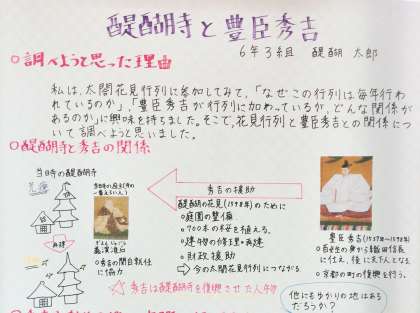 醍醐寺と豊臣秀吉
6年3組 醍醐 太郎
○調べようと思った理由
私は、太閤花見行列に参加してみて、「なぜこの行列は毎年行わ
れているのか」、「豊臣秀吉が行列に加わっているか、どんな関係が
あるのか」に興味を持ちました。そこで、花見行列と豊臣秀吉との関係につ
いて調べようと思いました。
○醍醐寺と秀吉の関係
当時の醍醐寺
荒廃
再建
義演准后
○秀吉の関白就任
に協力
秀吉の援助
醍醐の花見(1598年)のために
○庭園の整備
○700本の桜を植える。
○建物の修理・再建
○財政援助
⇒今の太閤花見行列につながる
☆秀吉は醍醐寺を復興させた人物
豊臣秀吉(1537年〜1598年)
○百姓の身から織田信長
に仕え、後に天下人となる。
○京都の町の復興を行う。
他にもゆかりの地はある
だろうか?